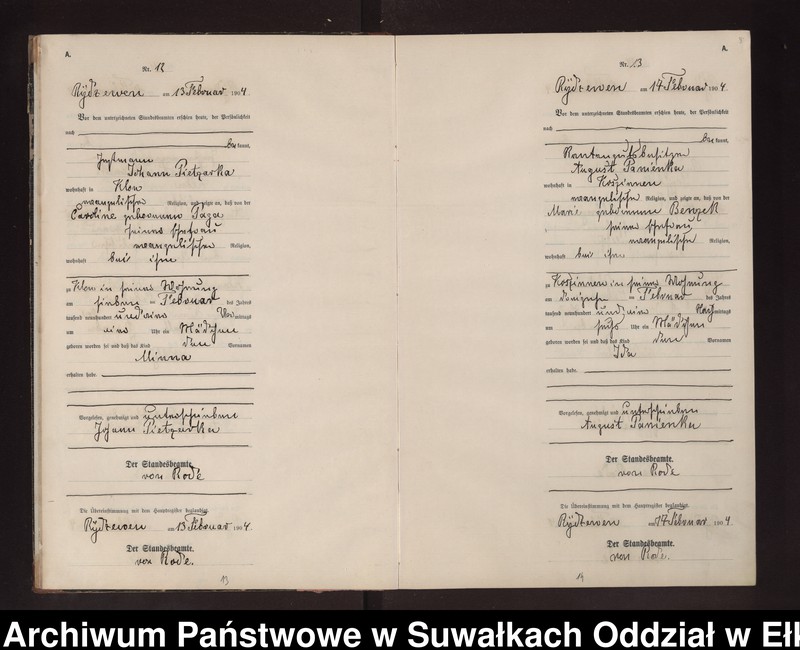 A.
Nr. 12
Rydzewen am 13 Februar 1904
Vor dem unterzeichneten Standesbeamten erschien heute, der Persönlichkeit
nach
be kannt,
Johann Pietzarka
wohnhaft in Klon
evangelischer Religion, und zeigte an, daß von der
Caroline geborenene
seiner Ehefrau
evangelischer Religion,
wohnhaft bei ihm
zu Klon in seiner Wohnung
am sieben ten Februar des Jahres
tausend neunhundert und vier Vor mittags
um ein Uhr ein Mädchen
geboren worden sei und daß das Kind den Vornamen
Minna
erhalten habe.
Vorgelesen, genehmigt und unterschrieben
Johann Pietzarka
Der Standesbeamte.
von Rode
Die Übereinstimmung mit dem Hauptregister beglaubigt.
Rydzewen am 13 Februar 1904.
Der Standesbeamte.
von Rode.
13
A.
Nr. 13
Rydzewen am 14 Februar 1904.
Vor dem unterzeichneten Standesbeamten erschien heute, der Persönlichkeit
nach
be kannt,
Rentengutsbesitzer
August Panienka
wohnhaft in Koszinnen
evangelischer Religion, und zeigte an, daß von der
Marie geborenene
seiner Ehefrau
evangelischer Religion,
wohnhaft bei ihm
zu Koszinnen in seiner Wohnung
am ten Februar des Jahres
tausend neunhundert und vier Nach mittags
um sechs Uhr ein Mädchen
geboren worden sei und daß das Kind den Vornamen
Ida
erhalten habe.
Vorgelesen, genehmigt und unterschrieben
August Panienka
Der Standesbeamte.
von Rode
Die Übereinstimmung mit dem Hauptregister beglaubigt.
Rydzewen am 14 Februar 1904
Der Standesbeamte.
von Rode.
14
Archiwum Państwowe w Suwałkach Oddział w Ełk